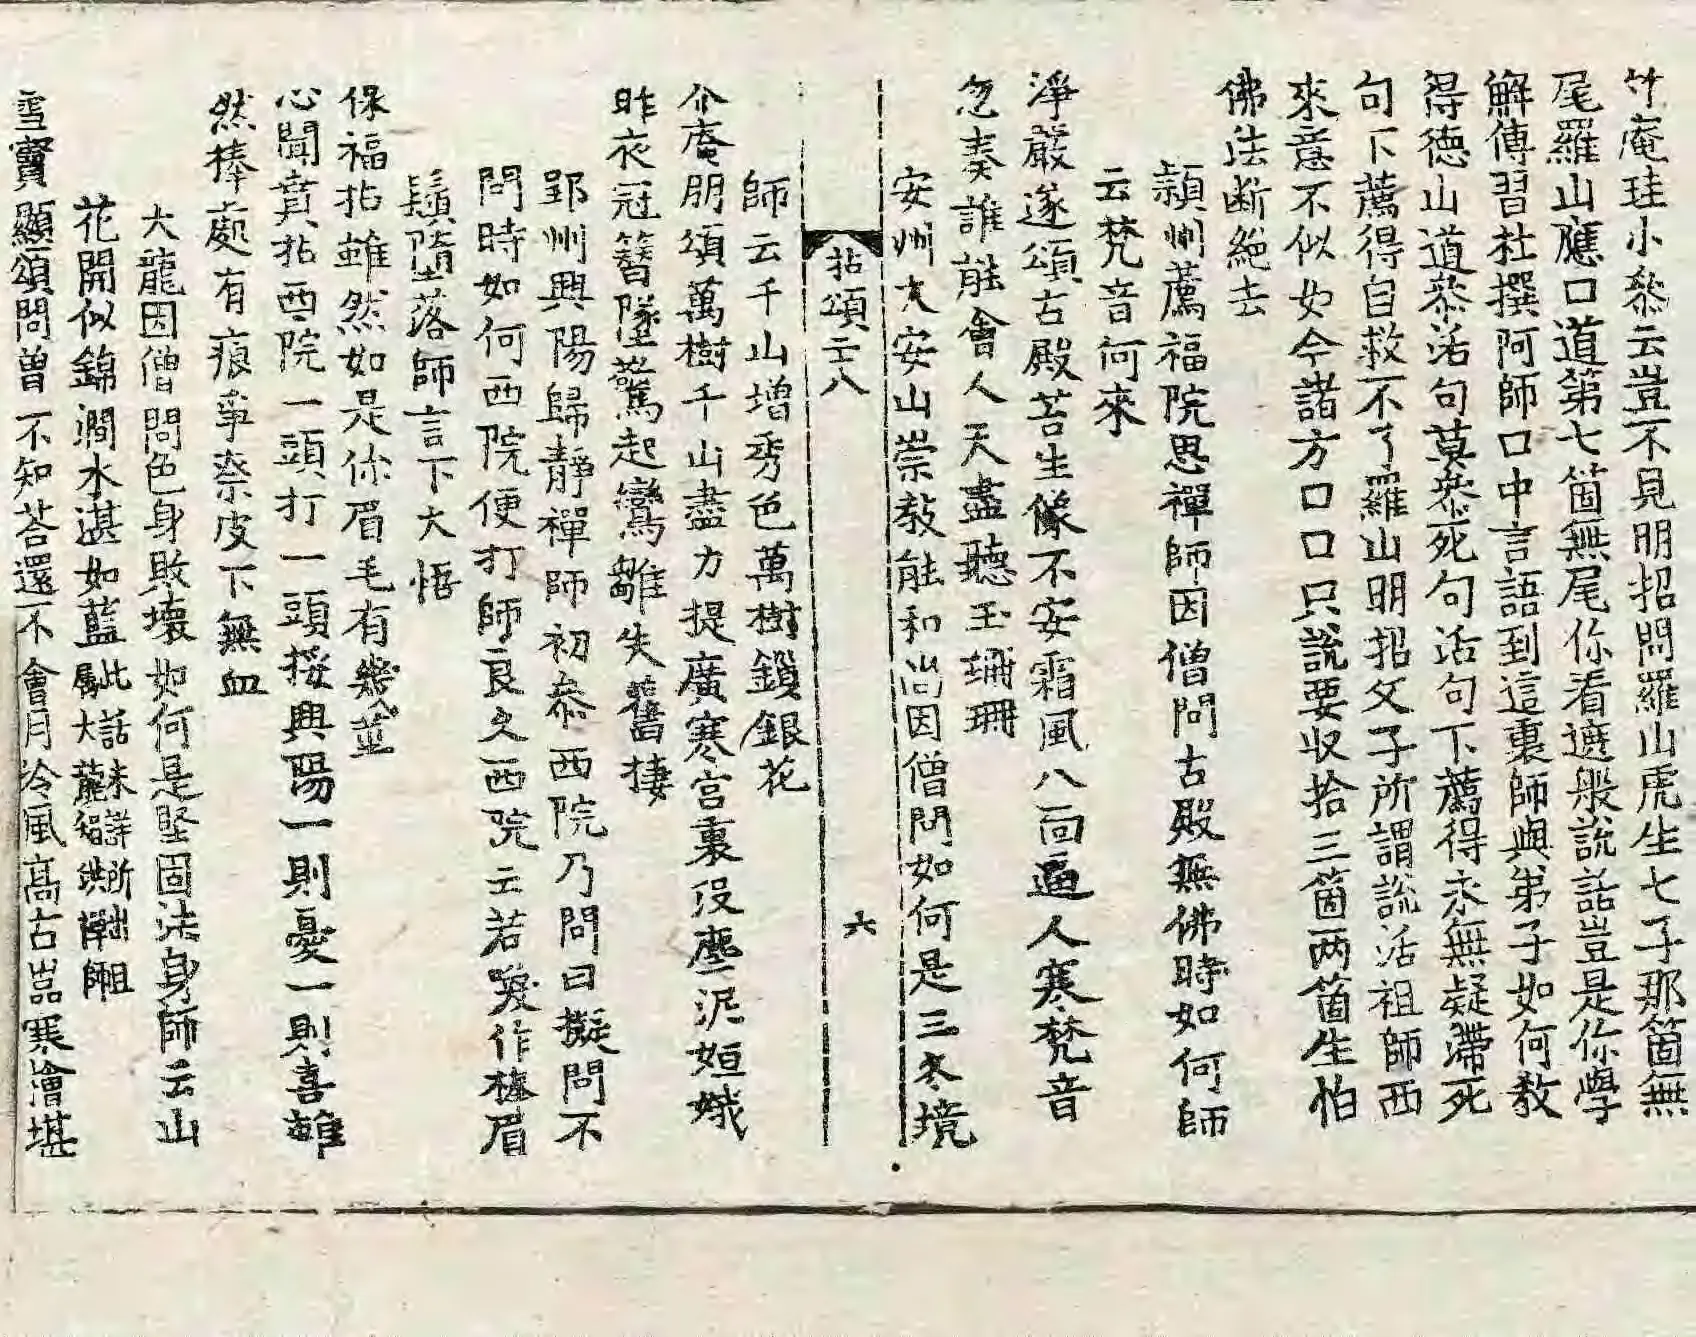 竹庵珪小叅云豈不見明招問羅山虎生七子那箇無
尾羅山應口道第七箇無尾你看遮般說話豈是你學
解傳習杜撰阿師口中言語到這裏師與弟子如何敎
得德山道叅活句莫叅死句活句下薦得永無疑滯死
句下薦得自救不了羅山明招父子所謂說活祖師西
來意不似如今諸方口口只說要収拾三箇两箇生怕
佛法断絶去
頴州薦福院思禪師因僧問古殿無佛時如何師
云梵音何來
淨嚴遂頌古殿苔生像不安霜風八面逼人寒梵音
忽奏誰能會人天盡聽玉珊珊
安州大安山崇敎能和尚因僧問如何是三冬境
拈頌二八 六
師云千山增秀色萬樹鎖銀花
介庵朋頌萬樹千山盡力提廣寒宮裏没塵泥姮娥
昨夜冠簪墜驚起鸞雛失舊捿
郢州興陽歸靜禪師初叅西院乃問曰擬問不
問時如何西院便打師良久西院云若喚作棒眉
鬚墮落師言下大悟
保福拈雖然如是你眉毛有幾莖
心聞賁拈西院一頭打一頭接興陽一則憂一則喜雖
然棒處有痕爭奈皮下無血
大龍因僧問色身敗壞如何是堅固法身師云山
花開似錦澗水湛如藍此話未詳所出且屬大龍智洪禪師
雪竇顯頌問曾不知荅還不會月冷風高古嵓寒檜堪